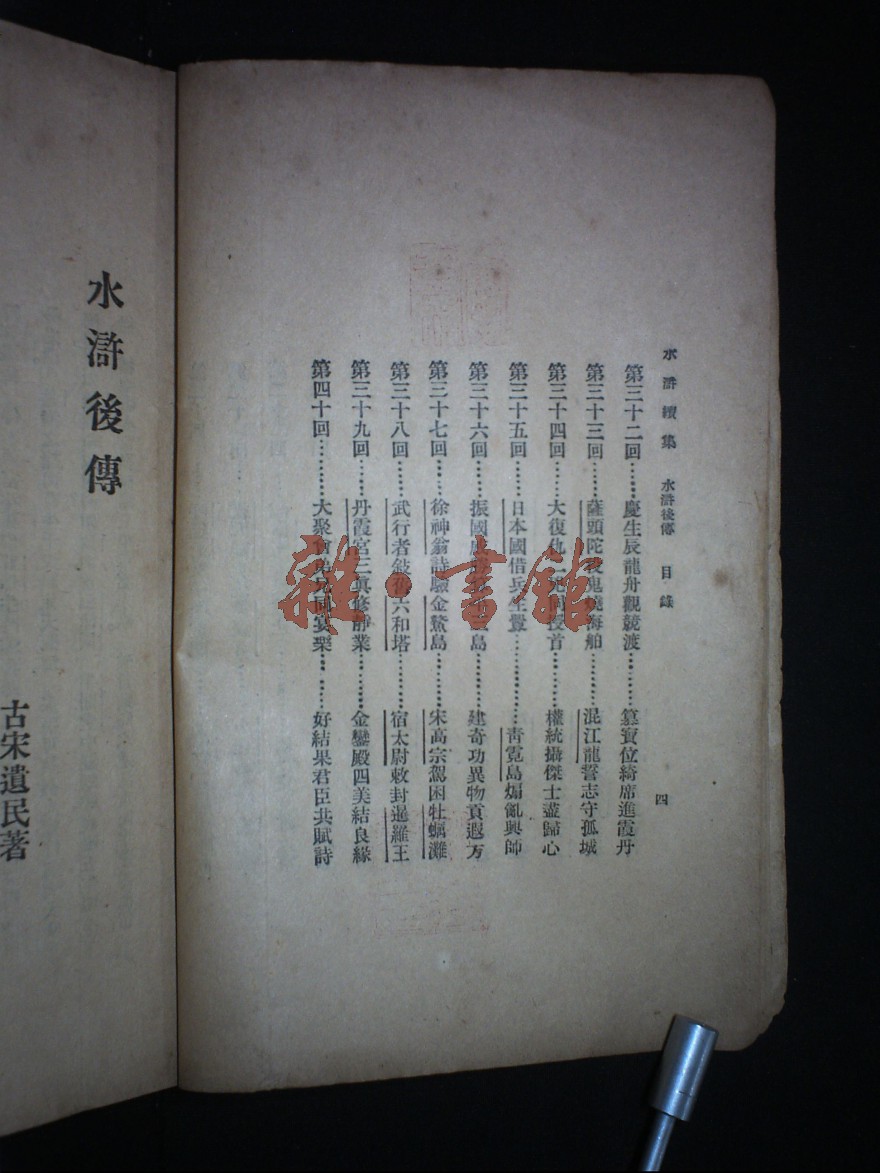 水滸續集 水滸後傳 目錄 四
第三十二回……慶生辰龍舟觀競渡………篡寶位綺席進霞丹
第三十三回……薩頭陀役鬼燒海舶………混江龍誓志守孤城
第三十四回……大復仇二兇同授首………權統攝傑士盡歸心
第三十五回……日本國借兵生釁…………青霓島煽亂興師
第三十六回……振國島………建奇功異物貢遐方
第三十七回……徐神翁詩驗金鰲島………宋高宗駕困牡蠣灘
第三十八回……武行者敍舊六和塔………宿太尉敕封暹羅王
第三十九回……丹霞宮三眞修靜業………金鑾殿四美結良緣
第四十回………大聚會民同宴樂………好結果君臣共賦詩
雜·書館
水滸後傳
古宋遺民著